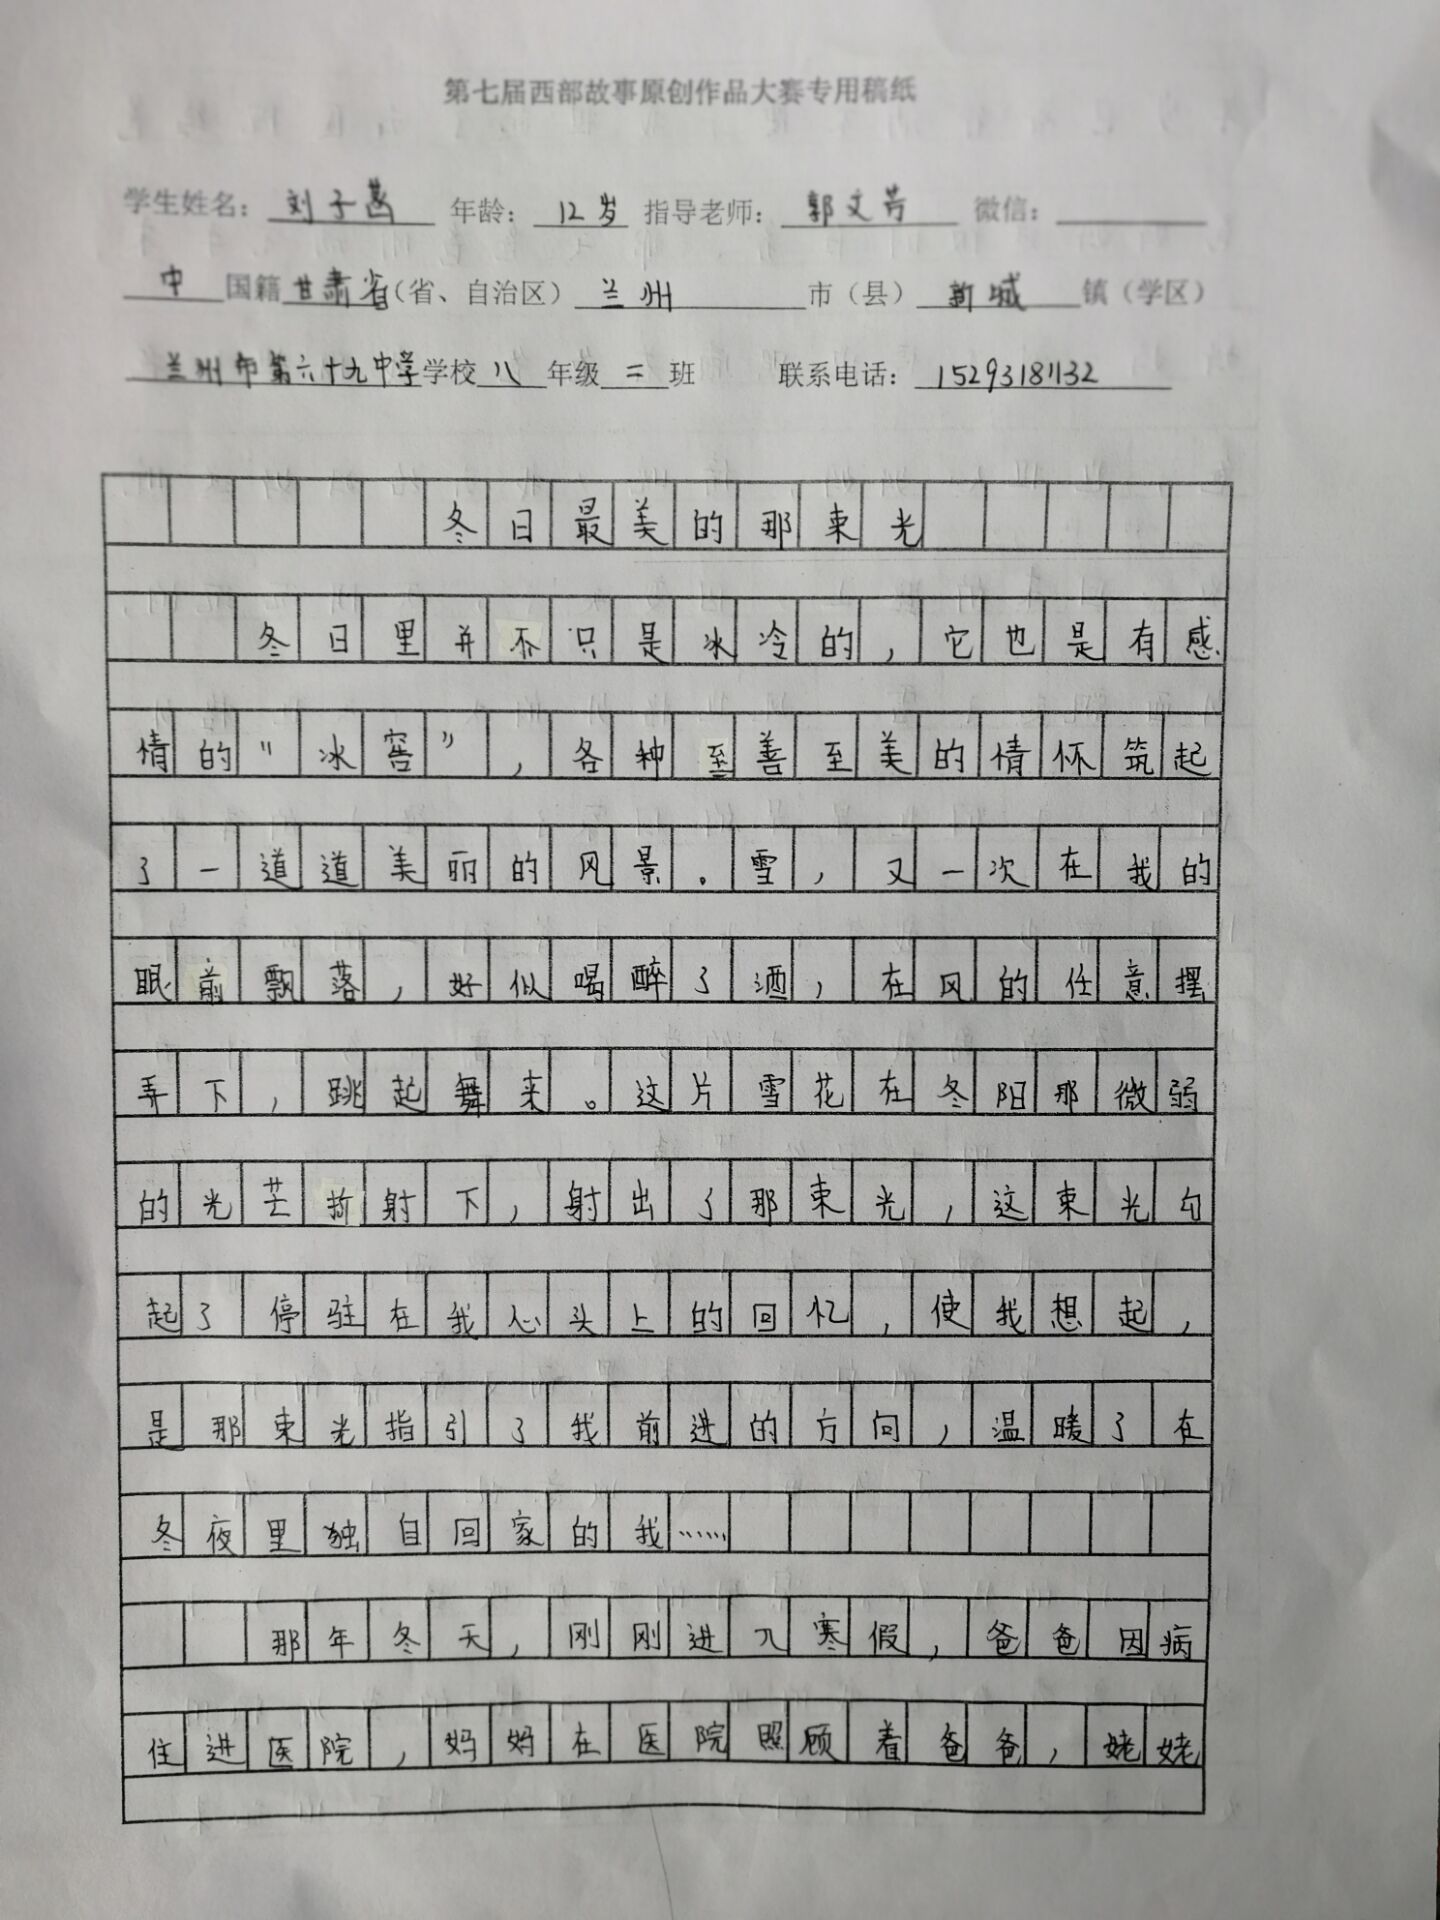 第七届西部故事原创作品大赛专用稿纸
学生姓名：刘子菡 年龄：12岁 指导老师：郭文芳 微信：
中国籍甘肃省（省、自治区）兰州市（县）新城镇（学区）
兰州市第六十九中学学校八年级二班 联系电话：15293181132
冬日最美的那束光
冬日里并不只是冰冷的，它也是有感
情的“冰窖”，各种至善至美的情怀筑起
了一道道美丽的风景。雪，又一次在我的
眼前飘落，好似喝醉了酒，在风的任意摆
弄下，跳起舞来。这片雪花在冬阳那微弱
的光芒折射下，射出了那束光，这束光勾
起了停驻在我心头上的回忆，使我想起，
是那束光指引了我前进的方向，温暖了在
冬夜里独自回家的我……
那年冬天，刚刚进入寒假，爸爸因病
住进医院，妈妈在医院照顾着爸爸，姥姥